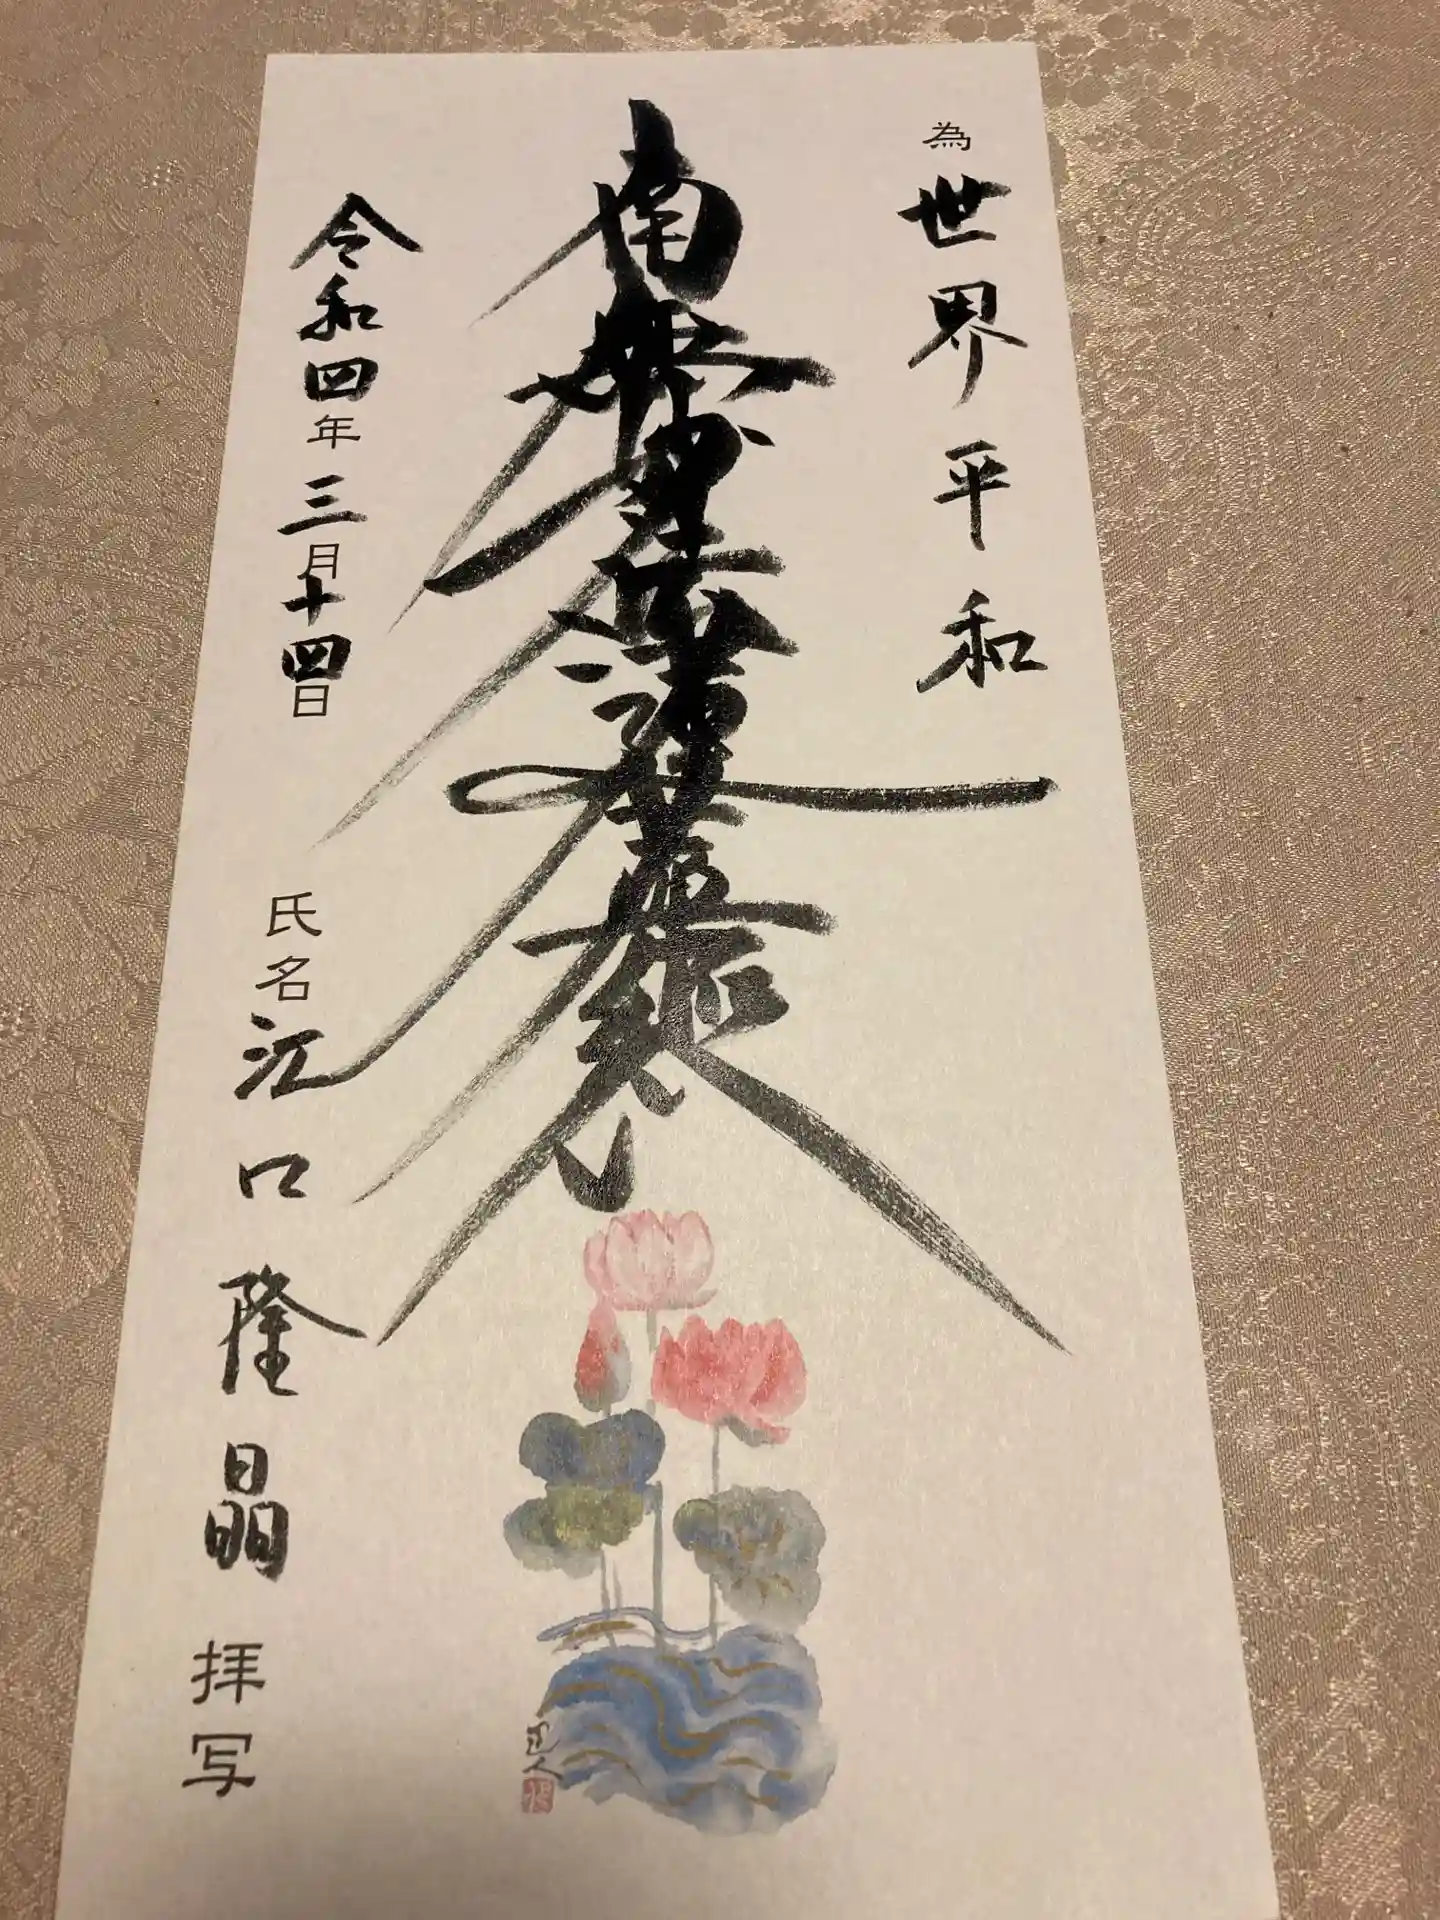 為世界平和
南無妙法蓮華經
令和四年三月十四日
氏名江口隆晶拝写